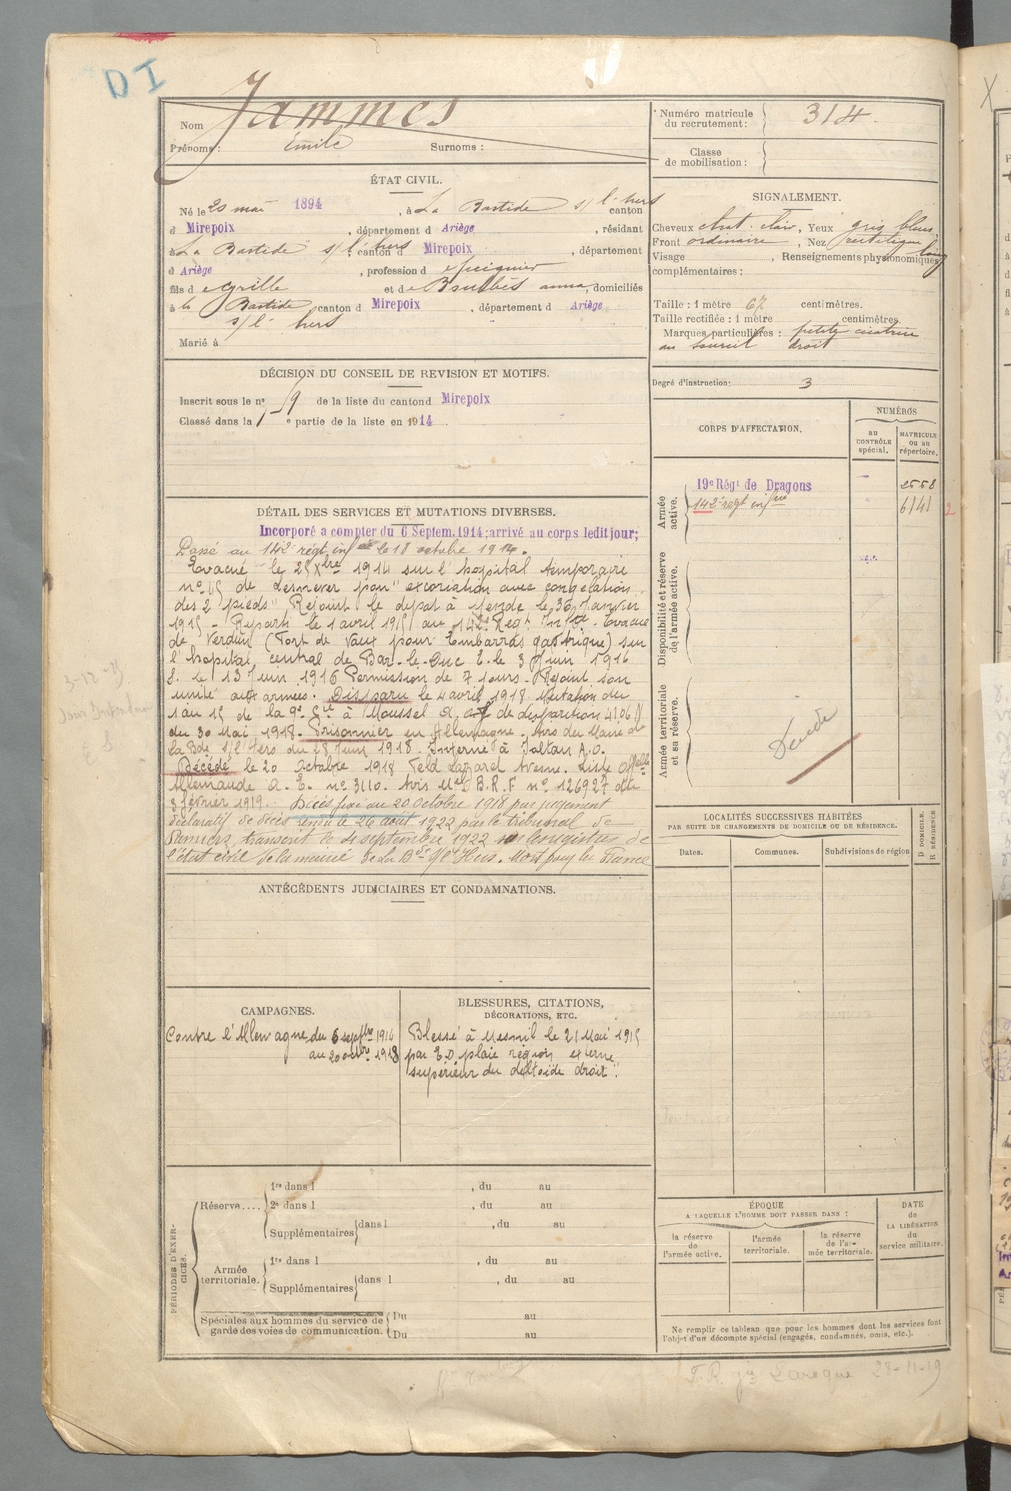 DI
Nom Jammes
Prénoms : Emile Surnoms :
Numéro matricule
du recrutement : 314.
Classe
de mobilisation :
ÉTAT CIVIL.
Né le 20 mai 1894, à La Bastide s/ l'hers canton
d Mirepoix, département d Ariège, résidant
à La Bastide s/ l'hers canton d Mirepoix, département
d Ariège, profession d
fils d Cyrille et de anna, domiciliés
à la Bastide canton d Mirepoix, département d Ariège
s/ l' hers
Marié à
SIGNALEMENT.
Cheveux chat. clair, Yeux gris bleu
Front ordinaire, Nez rectiligne
Visage long, Renseignements physionomiques
complémentaires :
Taille : 1 mètre 67 centimètres.
Taille rectifiée : 1 mètre centimètres.
Marques particulières : petite cicatrice
au sourcil droit
Degré d'instruction : 3
DÉCISION DU CONSEIL DE REVISION ET MOTIFS.
Inscrit sous le n° 59 de la liste du canton d Mirepoix
Classé dans la 1 e partie de la liste en 1914
CORPS D'AFFECTATION.
NUMÉROS
au
CONTRÔLE
spécial.
MATRICULE
ou au
répertoire.
Armée
active.
19e Régt de Dragons 2558
142e régt infrie 6141 2
Disponibilité et réserve
de l'armée active.
Armée territoriale
et sa réserve.
Décédé
DÉTAIL DES SERVICES ET MUTATIONS DIVERSES.
Incorporé a compter du 6 Septem. 1914; arrivé au corps ledit jour;
Passé au 142e régt infrie le 18 octobre 1914.
Evacué le 25 Xbre 1914 sur l'hopital temporaire
n° 45 de Lesneven pour "excoriation avec congelation
des 2 pieds" Rejoint le depot à Mende le 30 Janvier
1915 - Reparti le 1 avril 1915 au 142e Regt Infrie. Evacué
de Verdun (Fort de Vaux pour Embarras gastrique) sur
l'hopital central de Bar-le-Duc E. le 3 Juin 1916
S. le 13 Juin 1916 Permission de 7 jours - Rejoint son
unité aux armees. Disparu le 4 avril 1918 Mutation du
1 au 15 de la 9e Cie à Moussel a. de disparition 4106 N
du 30 Mai 1918. Prisonnier en Allemagne. Avis du Maire de
La Bde s/l'Hers du 28 Juin 1918. Interné à Soltau A.O.
Décédé le 20 Octobre 1918 Feld Lazaret Avesne. Liste Offelle
Allemande A. E. n° 3110. Avis Mel B.R.F n° 126927 du
3 février 1919. Décès fixé au 20 octobre 1918 par jugement
déclaratif de décès rendu le 26 août 1922 par le tribunal de
Pamiers, transcrit le 4 septembre 1922 sur les registres de
l'état civil de la mairie de La Bde s/l'Hers. Mort pour la France
LOCALITÉS SUCCESSIVES HABITÉES
PAR SUITE DE CHANGEMENTS DE DOMICILE OU DE RÉSIDENCE.
Dates. Communes. Subdivisions de région
D DOMICILE.
R RÉSIDENCE
ANTÉCÉDENTS JUDICIAIRES ET CONDAMNATIONS.
CAMPAGNES.
Contre l'Allemagne du 6 septbre 1914
au 20 octbre 1918
BLESSURES, CITATIONS,
DÉCORATIONS, ETC.
Blessé à Mesnil le 21 Mai 1915
par E.O. plaie région externe
supérieur du deltoide droit".
PÉRIODES D'EXERCICES.
Réserve....
1re dans l , du au
2e dans l , du au
Supplémentaires dans l , du au
Armée
territoriale.
1re dans l , du au
Supplémentaires dans l , du au
Spéciales aux hommes du service de
garde des voies de communication.
Du au
Du au
ÉPOQUE
A LAQUELLE L'HOMME DOIT PASSER DANS :
la réserve
de
l'armée active.
l'armée
territoriale.
la réserve
de l'armée territoriale.
DATE
de
LA LIBÉRATION
du
service militaire.
Ne remplir ce tableau que pour les hommes dont les services font
l'objet d'un décompte spécial (engagés, condamnés, omis, etc.).
F. R. Laroque 28-11-19